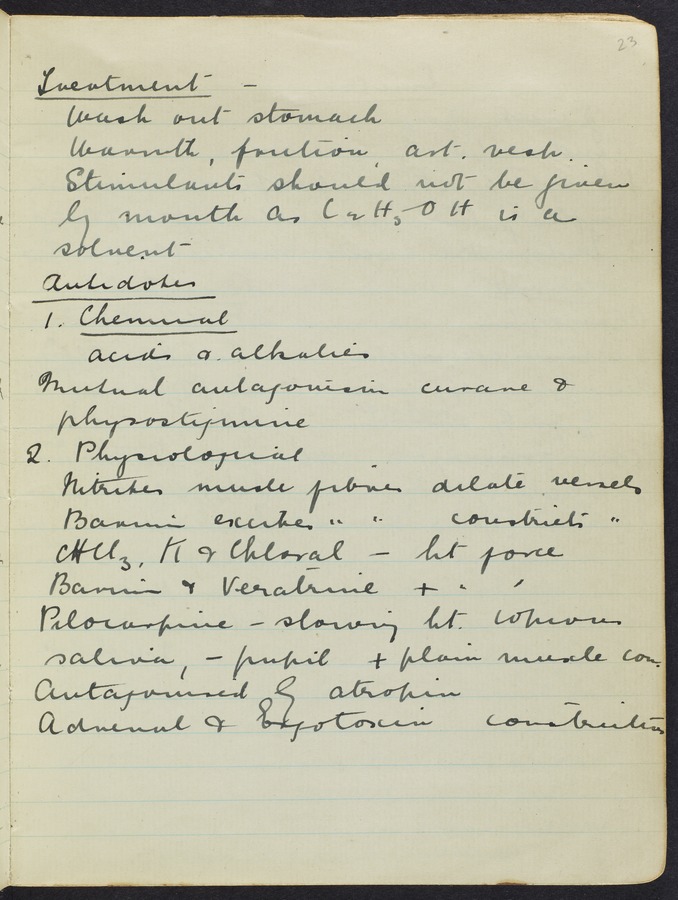 23
Treatment -
Wash out stomach
Warmth, friction, art. resp.
Stimulants should not be given
by mouth as C2H5OH is a
solvent
Antidotes
1. Chemical
acids & alkalies
Mutual antagonism curare &
physostigmine
2. Physiological
Nitrites muscle fibres dilate vessels
Barium excites " " constricts "
CHCl3, K & Chloral - ht force
Barium & Veratrine + " "
Pilocarpine - slowing ht. copious
saliva, - pupil + plain muscle con.
Antagonised by atropin
Adrenal & Ergotoxin constriction